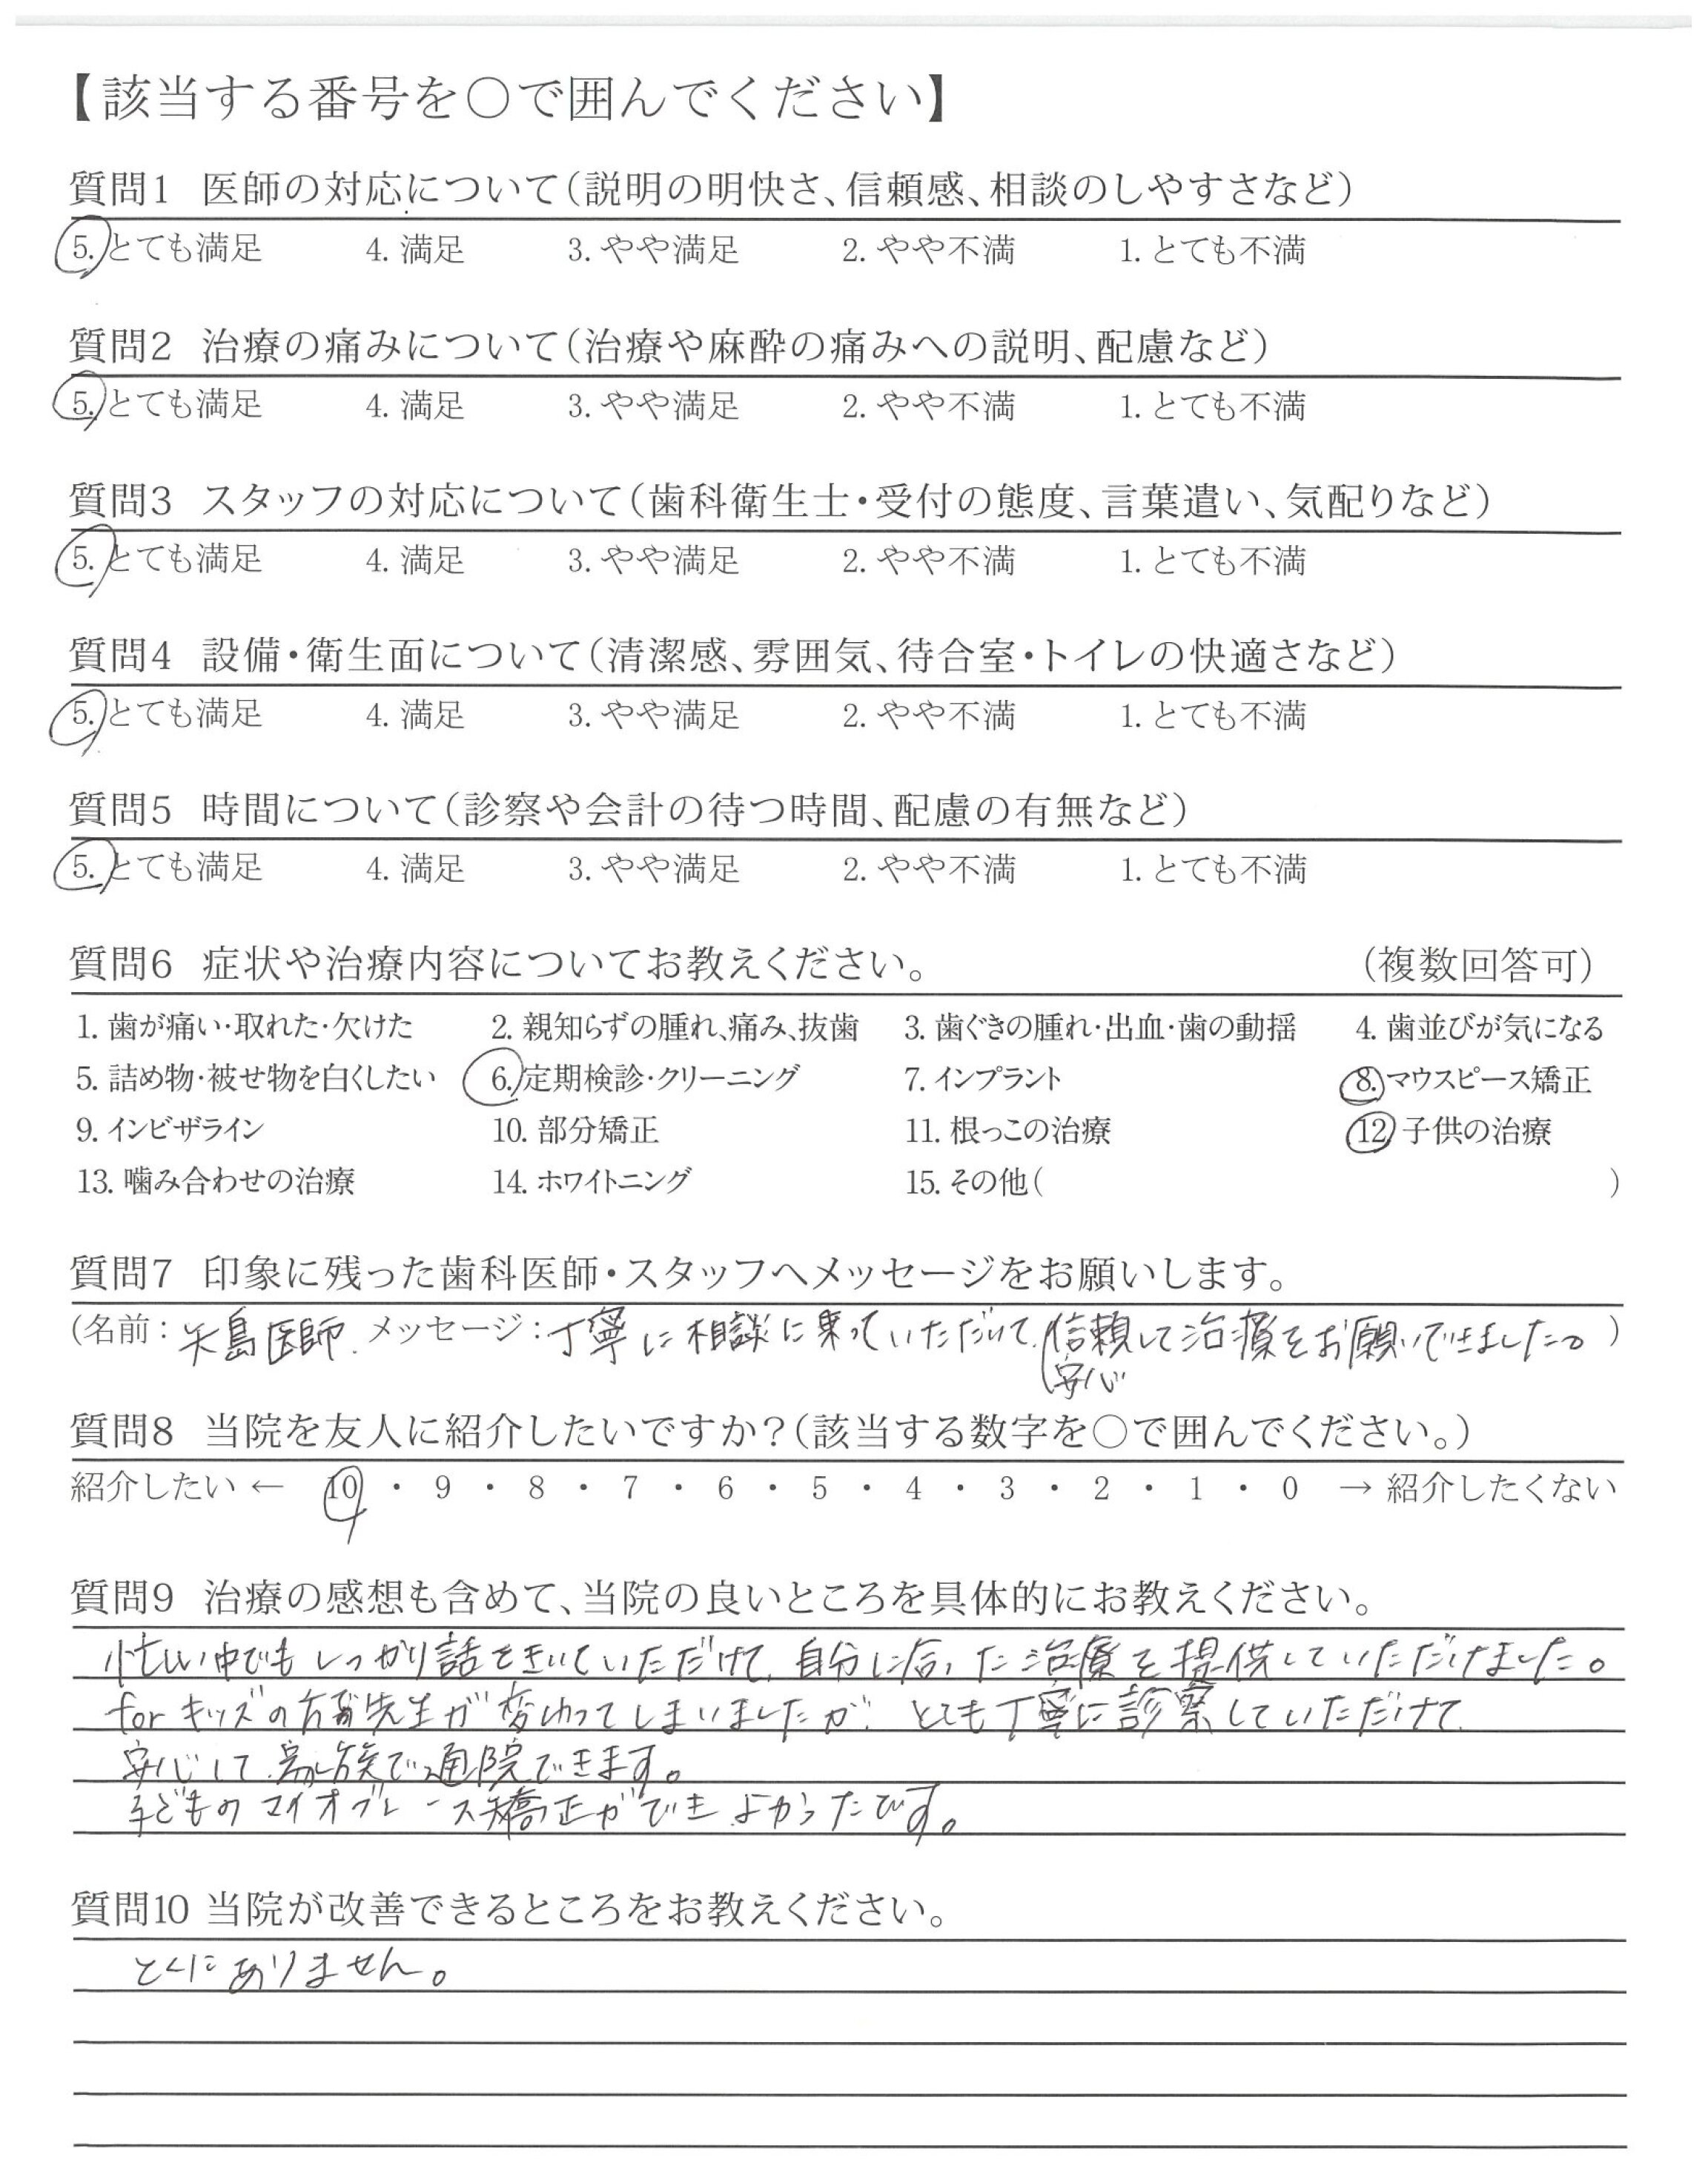 【該当する番号を○で囲んでください】
質問1 医師の対応について(説明の明快さ、信頼感、相談のしやすさなど)
5. とても満足 4. 満足 3. やや満足 2. やや不満 1. とても不満
質問2 治療の痛みについて(治療や麻酔の痛みへの説明、配慮など)
5. とても満足 4. 満足 3. やや満足 2. やや不満 1. とても不満
質問3 スタッフの対応について(歯科衛生士・受付の態度、言葉遣い、気配りなど)
5. とても満足 4. 満足 3. やや満足 2. やや不満 1. とても不満
質問4 設備・衛生面について(清潔感、雰囲気、待合室・トイレの快適さなど)
5. とても満足 4. 満足 3. やや満足 2. やや不満 1. とても不満
質問5 時間について(診察や会計の待つ時間、配慮の有無など)
5. とても満足 4. 満足 3. やや満足 2. やや不満 1. とても不満
質問6 症状や治療内容についてお教えください。 (複数回答可)
1. 歯が痛い・取れた・欠けた 2. 親知らずの腫れ、痛み、抜歯 3. 歯ぐきの腫れ・出血・歯の動揺 4. 歯並びが気になる
5. 詰め物・被せ物を白くしたい 6. 定期検診・クリーニング 7. インプラント 8. マウスピース矯正
9. インビザライン 10. 部分矯正 11. 根っこの治療 12 子供の治療
13. 噛み合わせの治療 14. ホワイトニング 15. その他( )
質問7 印象に残った歯科医師・スタッフへメッセージをお願いします。
(名前: 矢島医師. メッセージ: 丁寧に相談に乗っていただいて、信頼して治療をお願いできました。)
安心
質問8 当院を友人に紹介したいですか?(該当する数字を○で囲んでください。)
紹介したい ← 10 ・ 9 ・ 8 ・ 7 ・ 6 ・ 5 ・ 4 ・ 3 ・ 2 ・ 1 ・ 0 → 紹介したくない
質問9 治療の感想も含めて、当院の良いところを具体的にお教えください。
忙しい中でもしっかり話をきいていただけて、自分に合った治療を提供していただけました。
for キッズの 先生が変わってしまいましたが、とても丁寧に診察していただけて、
安心して、家族で通院できます。
子どものマイオブレース矯正ができよかったです。
質問10 当院が改善できるところをお教えください。
とくにありません。